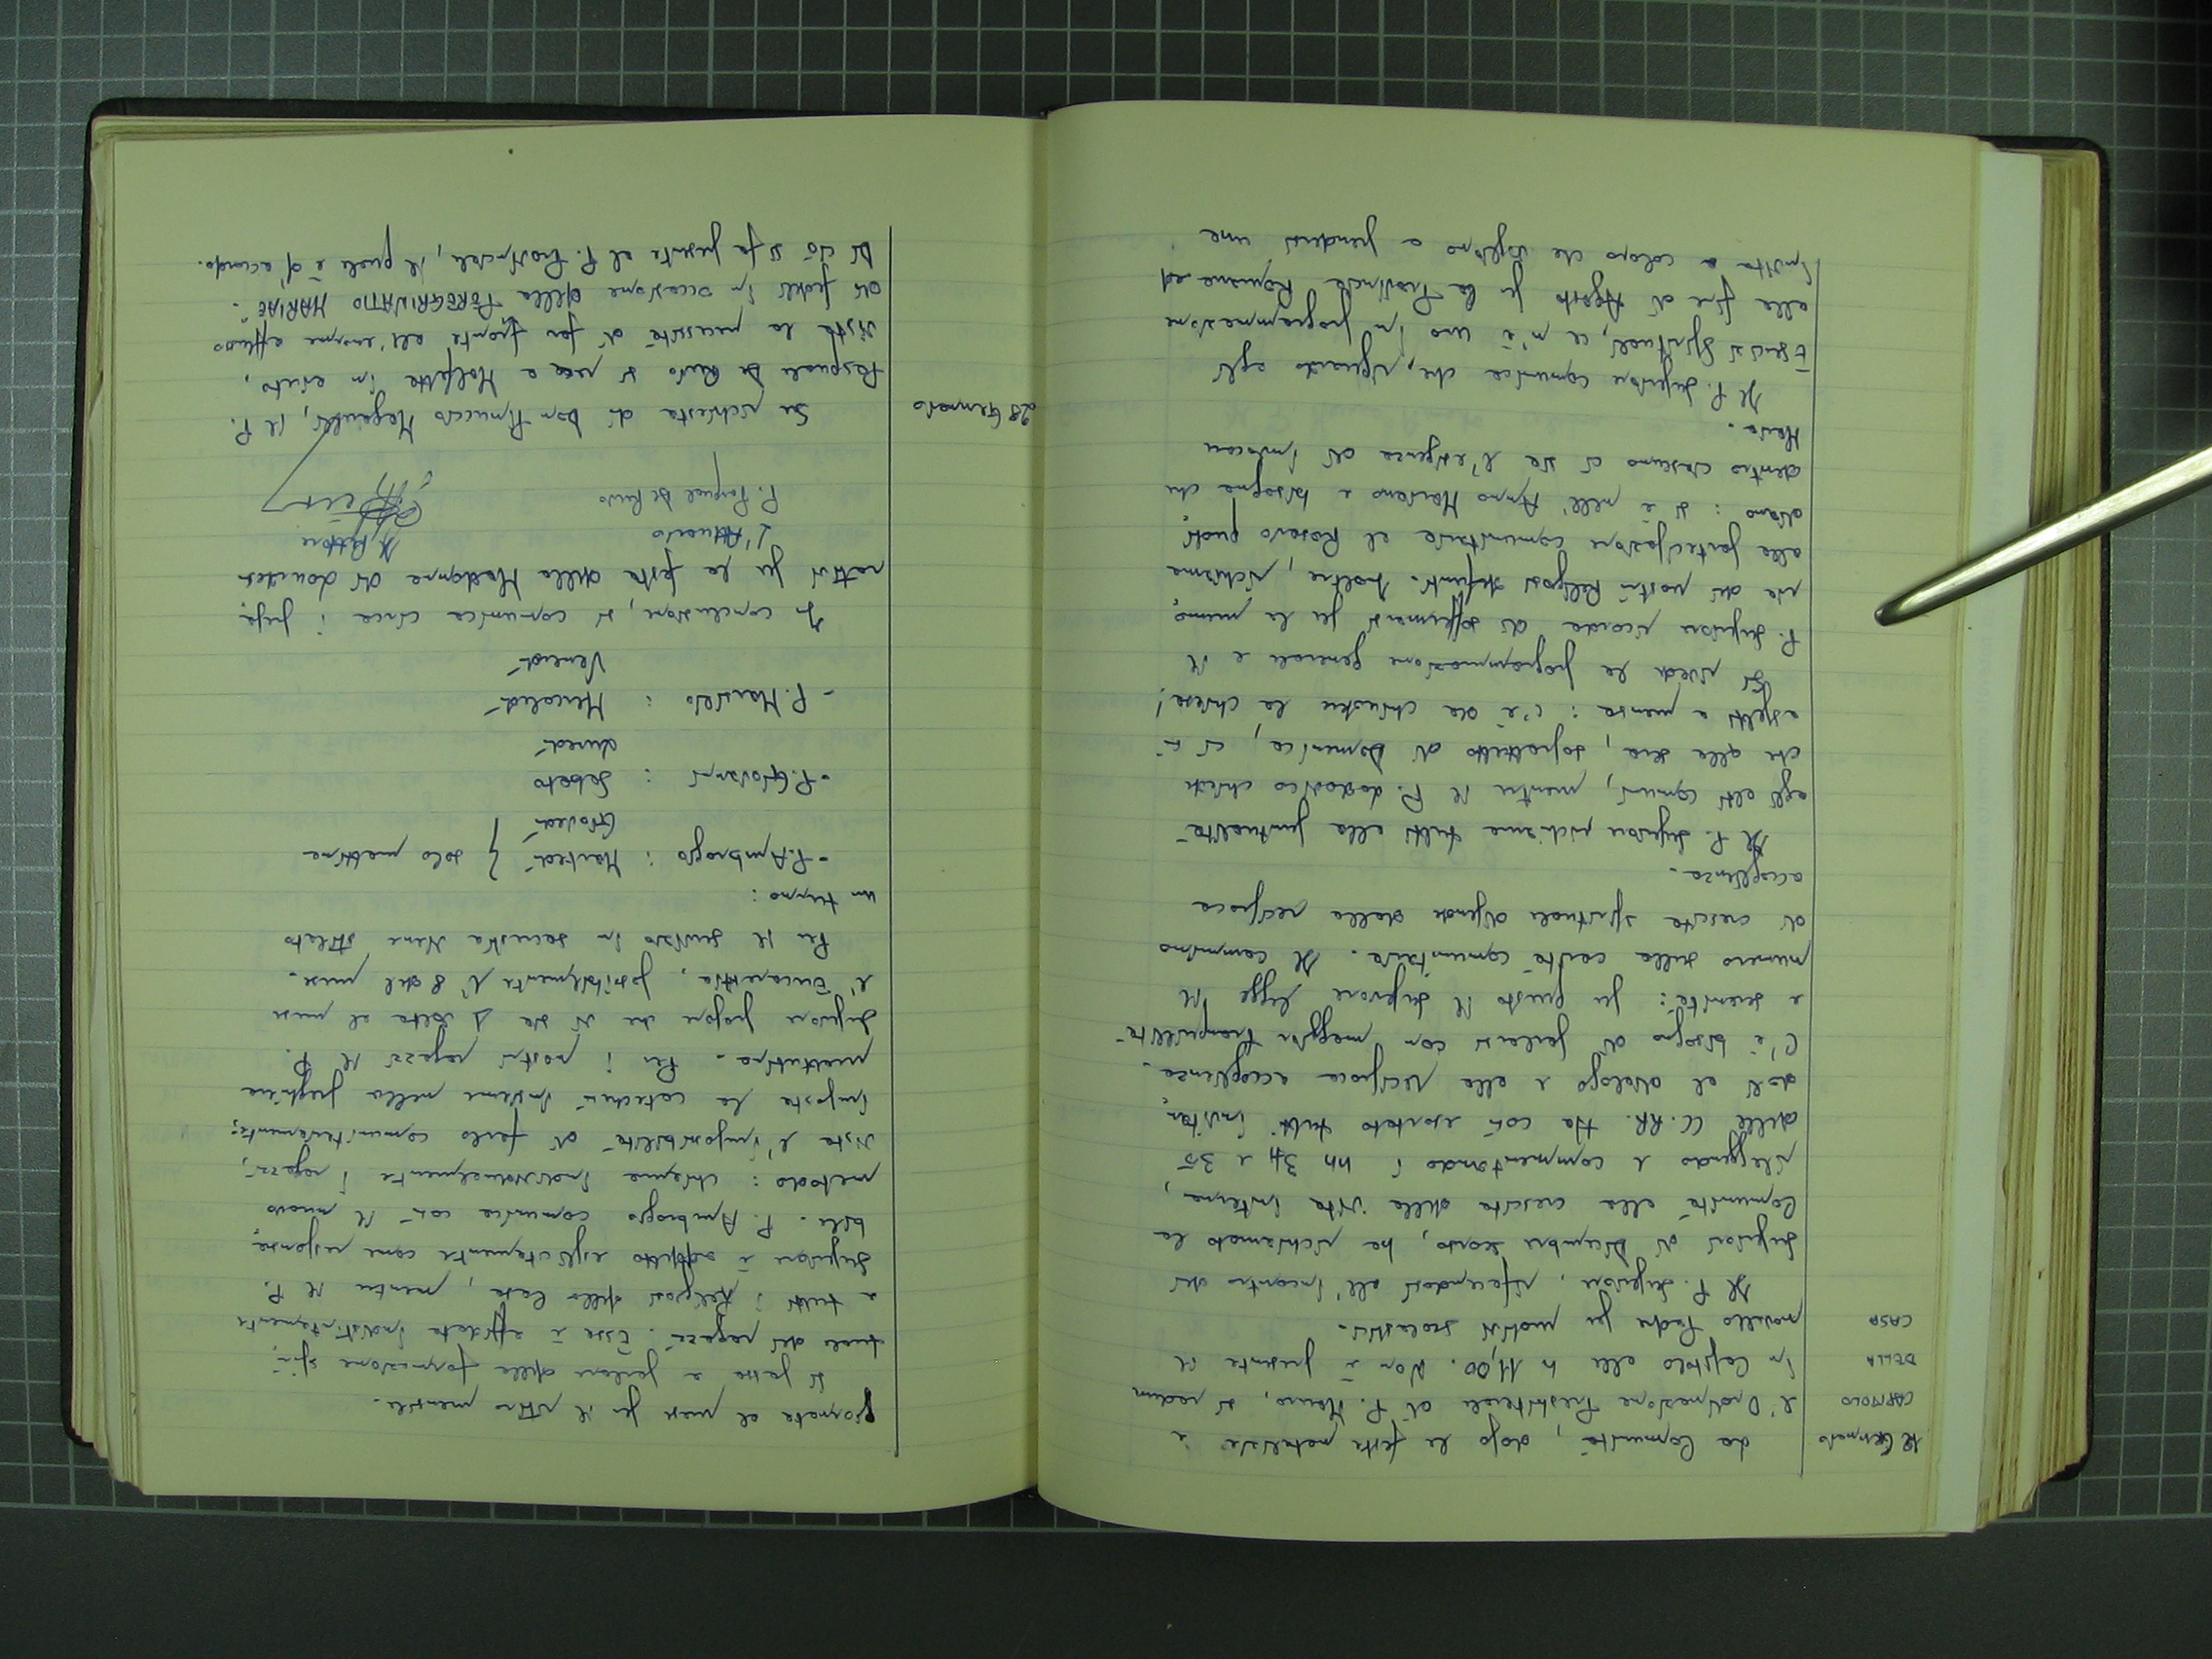 12 Gennaio
CAPITOLO
DELLA
CASA
La Comunità, dopo le feste natalizie e
l'Ordinazione Presbiterale di P. Mauro, si radun
in Capitolo alle h 11,00. Non è presente il
novello Padre per motivi scolastici.
Il P. Superiore, riferendosi all'incontro dei
Superiori di Dicembre scorso, ha richiamato la
Comunità alla crescita della vita interna,
rileggendo e commentando i nn 34 e 35
delle CC.RR. Ha così esortato tutti invitan
doli al dialogo e alla reciproca accoglienza.
C'è bisogno di parlarsi con maggior tranquillità
e serenità: per questo il Superiore legge il
numero sulla carità comunitaria. Il cammino
di crescita spirituale dipende dalla reciproca
accoglienza.
Il P. Superiore richiama tutti alla puntualità
agli atti comuni, mentre il P. Lodovico chiede
che alla sera, soprattutto di Domenica, ci si
aspetti a mensa: c'è da chiudere la chiesa!
Si rivede la programmazione generale e il
P. Superiore ricorda di soffermarsi per la memo
ria dei nostri Religiosi defunti. Inoltre, richiama
alla partecipazione comunitaria al Rosario quoti
diano: si è nell'Anno Mariano e bisogna che
dentro ciascuno ci sia l'esigenza di invocare
Maria.
Il P. Superiore comunica che, riguardo agli
Esercizi Spirituali, ce n'è uno in programmazione
alla fine di Agosto per la Provincia Romana ed
invita a coloro che vogliono a prendersi una
giornata al mese per il ritiro mensile.
Si passa a parlare della formazione spiri
tuale dei ragazzi. Essa è affidata indistintamente
a tutti i Religiosi della Casa, mentre il P.
Superiore è addetto esplicitamente come responsa
bile. P. Ambrogio comunica così il nuovo
metodo: chiama individualmente i ragazzi,
vista l'impossibilità di farlo comunitariamente;
imposta la catechesi insieme nella preghiera
mattutina. Per i nostri ragazzi il P.
Superiore propone che vi sia 1 volta al mese
l'Eucarestia, possibilmente l'8 del mese.
Per il servizio in sacrestia viene stilato
un turno:
- P. Ambrogio : Martedì } solo mattina
Giovedì
- P. Giovanni : Sabato
Lunedì
- P. Maurizio : Mercoledì
Venerdì
In conclusione, si comunica circa i prepa
rativi per la festa della Madonna di Lourdes
L'Attuario Il Rettore
P. Pasquale De Ruvo
28 Gennaio
Su richiesta di Don Nuccio Magarelli, il P.
Pasquale De Ruvo si reca a Molfetta in aiuto,
vista la necessità di far fronte all'enorme afflusso
di fedeli in occasione della "PEREGRINATIO MARIAE".
Di ciò si fa presente al P. Provinciale, il quale è d'accordo.